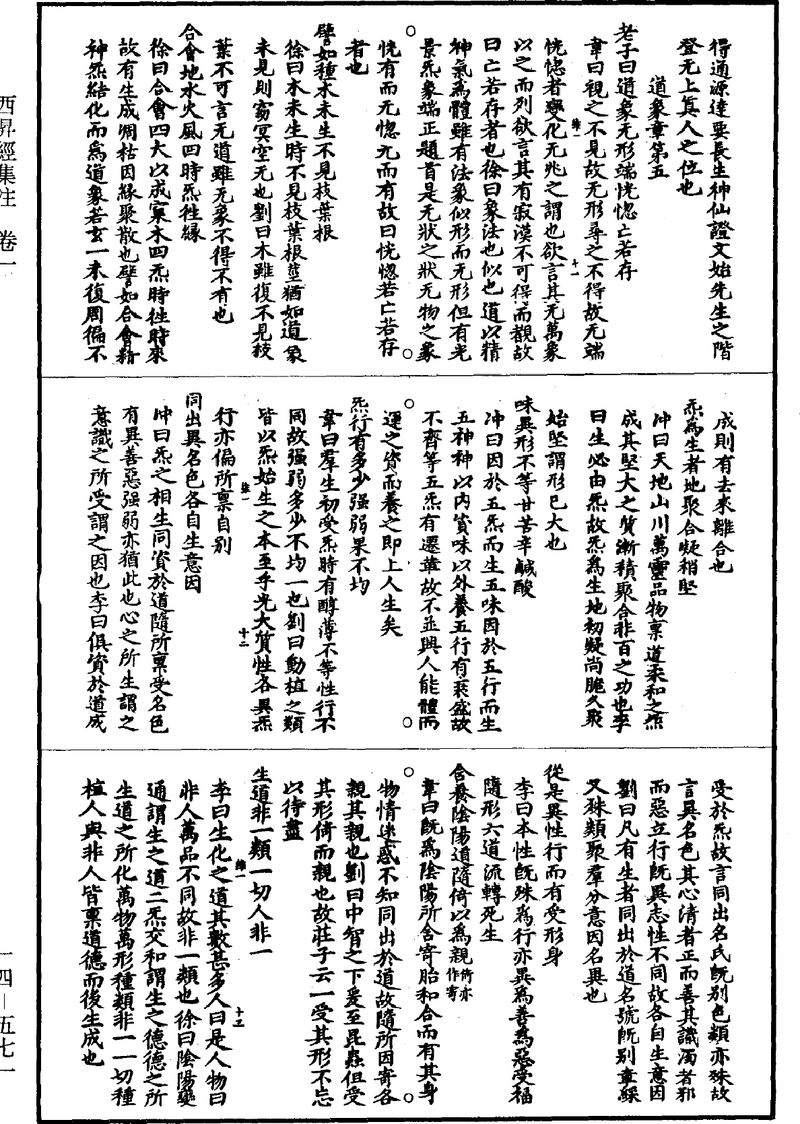 得通源達要長生神仙證文始先生之階
登无上真人之位也
道象章第五
老子曰道象无形端恍惚亡若存
韋曰視之不見故无形尋之不得故无端
恍惚者變化无兆之謂也欲言其无萬象
以之而列欲言其有寂漠不可得而覩故
曰亡若存者也徐曰象法也似也道以精
神氣為體雖有法象似形而无形但有光
景炁象端正題首是无狀之狀无物之象
恍有而无惚无而有故曰恍惚若亡若存
者也
譬如種木未生不見枝葉根
徐曰木未生時不見枝葉根莖猶如道象
未見則窈冥空无也劉曰木雖復不見枝
葉不可言无道雖无象不得不有也
合會地水火風四時炁往緣
徐曰合會四大以成窠木四炁時往時來
故有生成凋枯因緣聚散也譬如合會精
神炁結化而為道象若玄一未復周徧不
成則有去來離合也
炁為生者地聚合凝稍堅
沖曰天地山川萬靈品物稟道柔和之炁
成其堅大之質漸積聚合非百之功也李
曰生必由炁故炁為生地初凝尚脆久聚
始堅謂形已大也
味異形不等甘苦辛鹹酸
沖曰因於五炁而生五味因於五行而生
五神神以內賞味以外養五行有衰盛故
不齊等五炁有遷革故不並與人能體而
運之資而養之即上人生矣
炁行有多少强弱果不均
韋曰羣生初受炁時有醇薄不等性行不
同故强弱多少不均一也劉曰動植之類
皆以炁始生之本至乎光大質性各異炁
行亦偏所稟自別
同出異名色各自生意因
沖曰炁之相生同資於道隨所稟受名色
有異善惡强弱亦猶此也心之所生謂之
意識之所受謂之因也李曰俱資於道咸
受於炁故言同出名氏旣別色類亦殊故
言異名色其心清者正而善其識濁者邪
而惡立行旣異志性不同故各自生意因
劉曰凡有生者同出於道名號旣別章綵
又殊類聚羣分意因名異也
從是異性行而有受形身
李曰本性旣殊為行亦異為善為惡受福
隨形六道流轉死生
含養陰陽道隨倚以為親倚亦作寄
韋曰旣為陰陽所含寄胎和合而有其身
物情迷惑不知同出於道故隨所因寄各
親其親也劉曰中智之下爰至昆蟲但受
其形倚而親也故莊子云一受其形不忘
以待盡
生道非一類一切人非一
李曰生化之道其數甚多人曰是人物曰
非人萬品不同故非一類也徐曰陰陽變
通謂生之道二炁交和謂生之德德之所
生道之所化萬物萬形種類非一一切種
植人與非人皆稟道德而後生成也
西昇經集注 卷一
一四—五七一